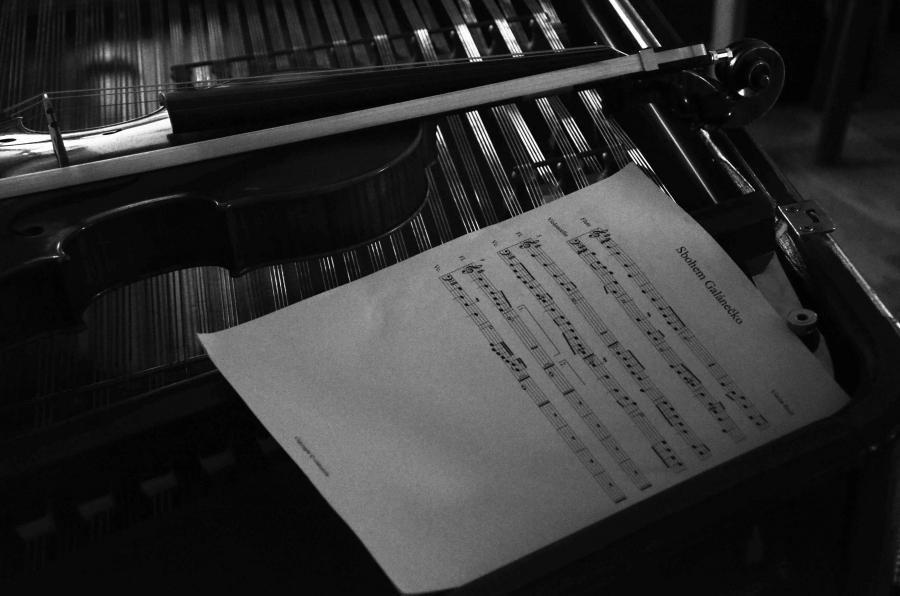 Sbohem Galánečko
Flute
Violoncello
Fl.
Vc.
Fl.
Vc.